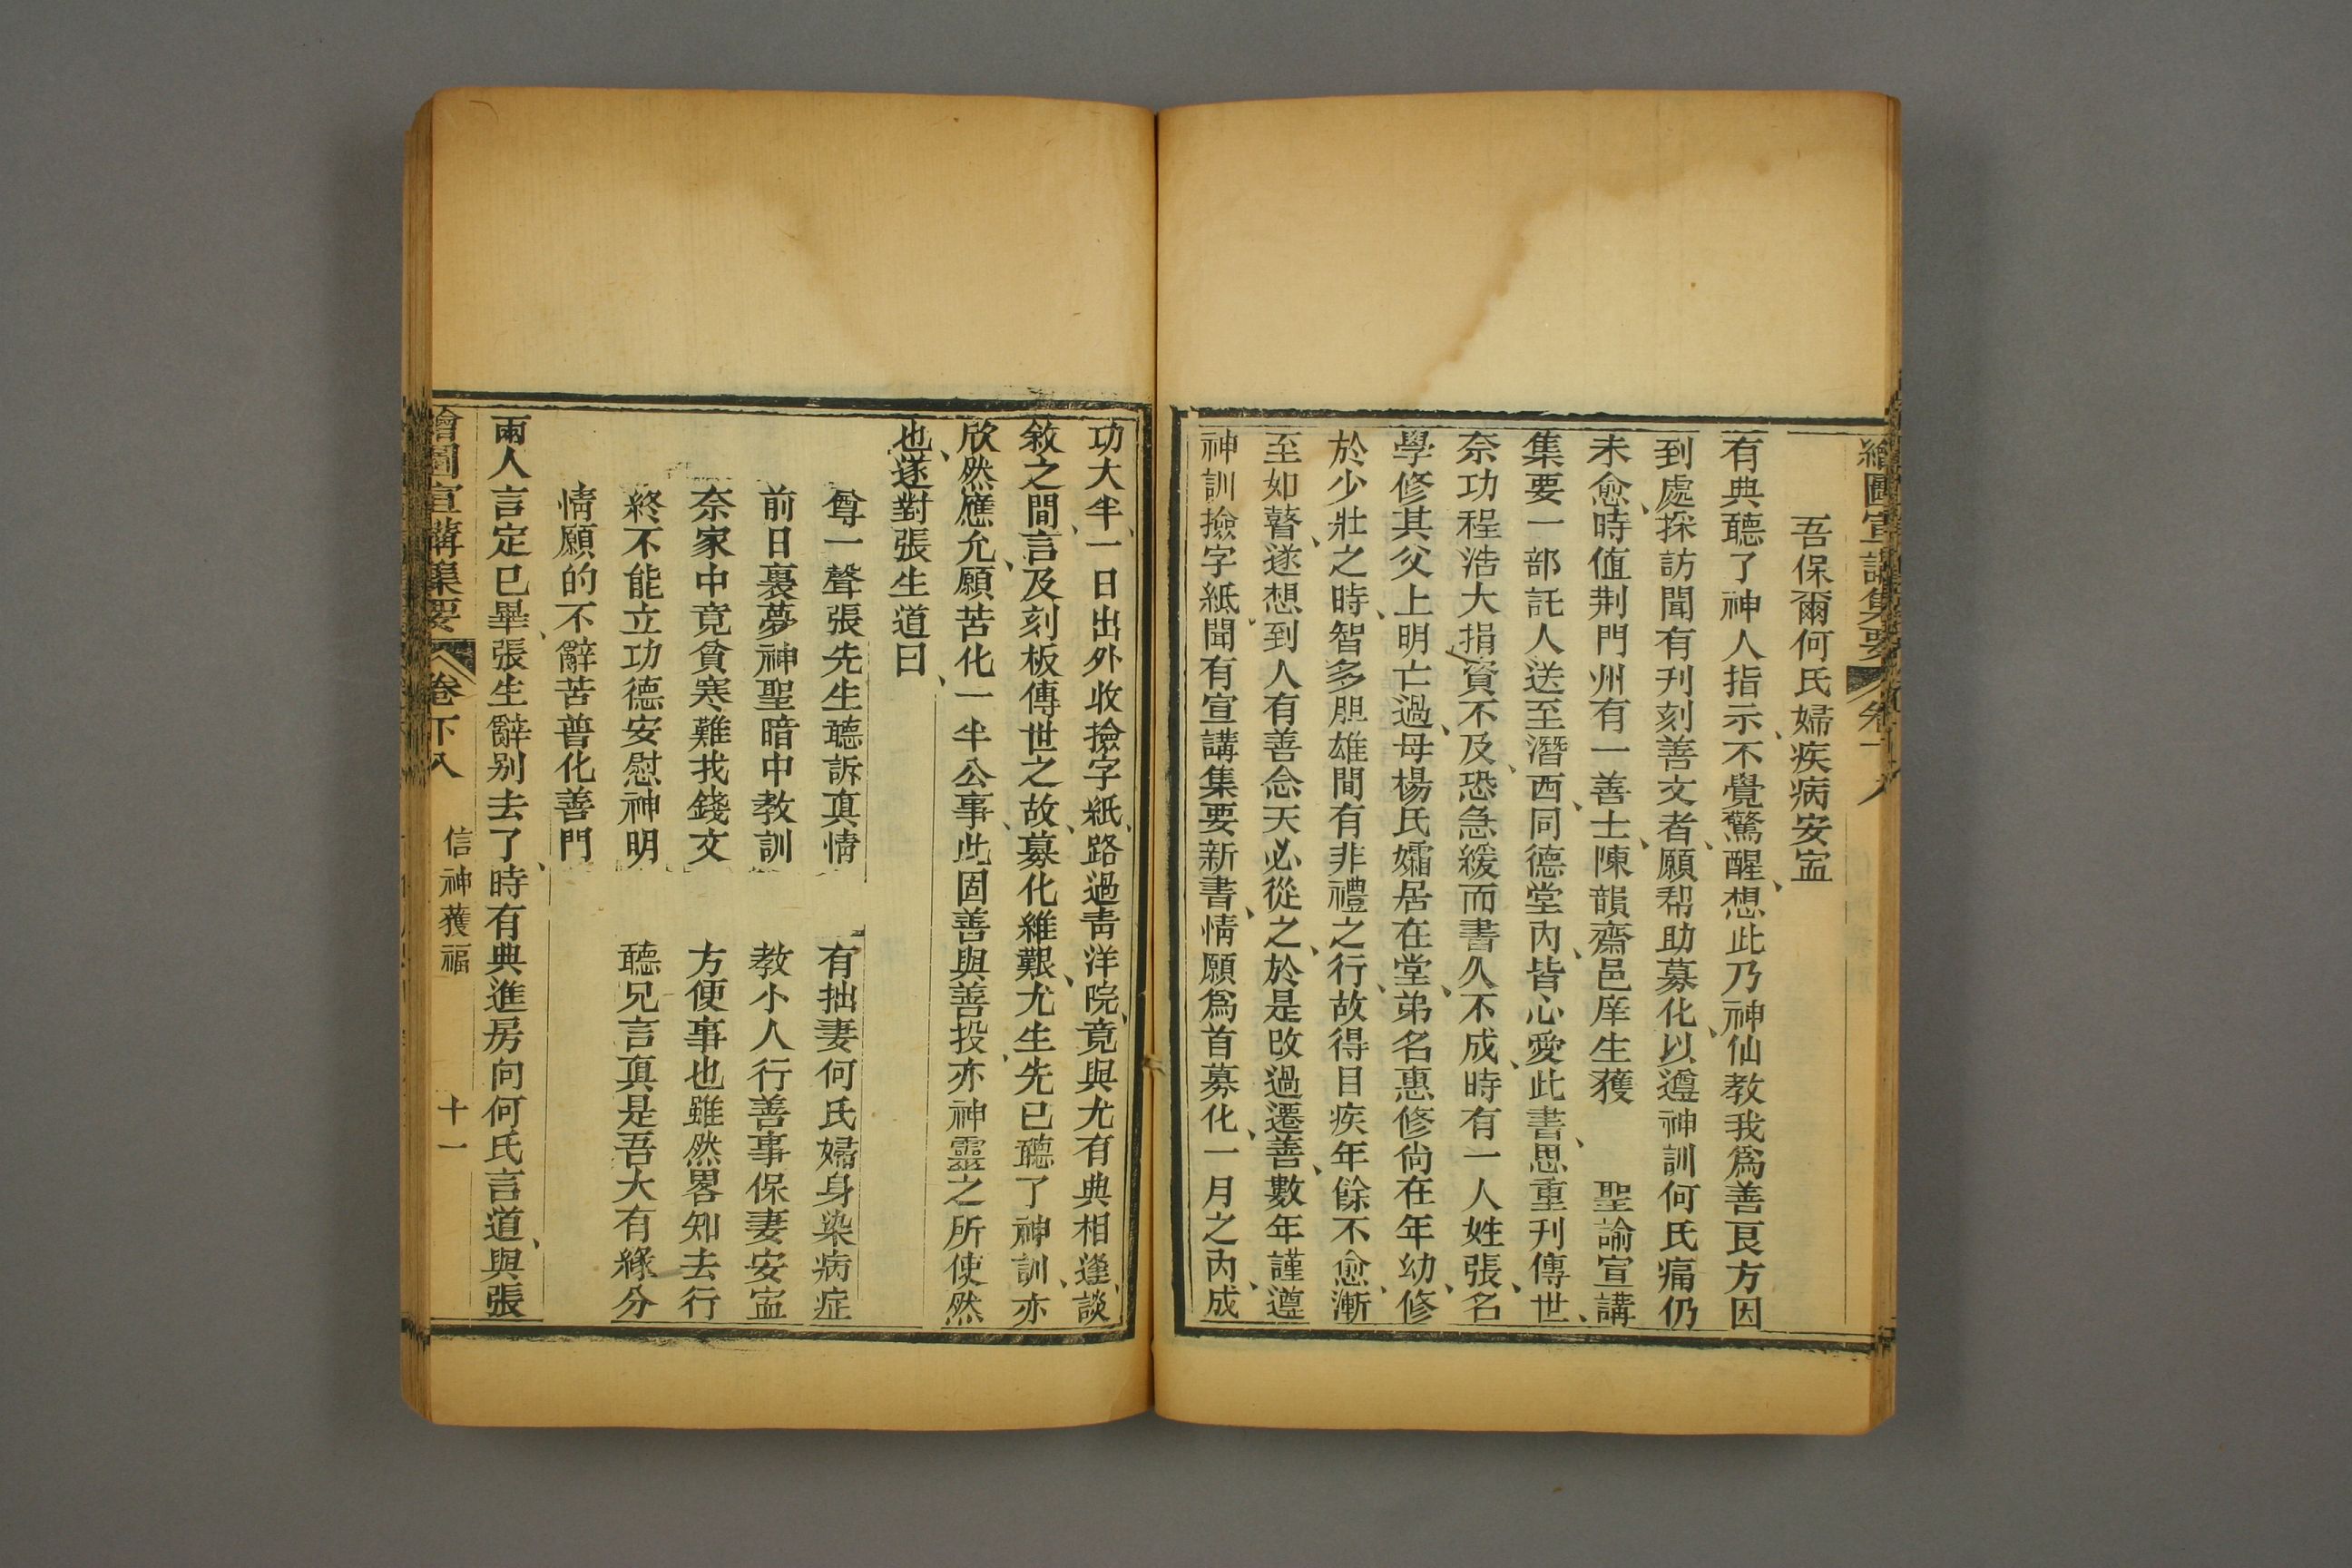 繪圖宣講集要
吾保爾何氏婦疾病安寍
有典聽了神人指示、不覺驚醒、想此乃神仙教我爲善良方因
到處採訪聞有刊刻善文者、願帮助募化、以遵神訓何氏痛仍
未愈、時值荆門州有一善士、陳韻齋邑庠生獲　聖諭宣講
集要一部託人送至潛西、同德堂內、皆心愛此書、思重刊傳世、
奈功程浩大捐資不及、恐急緩而書久不成、時有一人姓張、名
學修其父上明亡過、母楊氏孀居在堂、弟名惠修尙在年幼、修
於少壯之時、智多胆雄間有非禮之行、故得目疾年餘不愈、漸
至如瞽、遂想到人有善念天必從之、於是改過遷善、數年謹遵
神訓撿字紙、聞有宣講集要新書、情願爲首募化、一月之內、成
功大半、一日出外收撿字紙、路過靑洋院、竟與尤有典相逢、談
敘之間、言及刻板傳世之故、募化維艱、尤生先已聽了神訓、亦
欣然應允、願苦化一半公事、此固善與善投、亦神靈之所使然
也、遂對張生道曰、
尊一聲張先生聽訴眞情　有拙妻何氏婦身染病症
前日裏夢神聖暗中教訓　教小人行善事保妻安寍
奈家中竟貧寒難找錢文　方便事也雖然畧知去行
終不能立功德安慰神明　聽兄言眞是吾大有緣分
情願的不辭苦普化善門
兩人言定已畢、張生辭别去了、時有典進房向何氏言道、與張
繪圖宣講集要　卷下八　信神獲福　十一